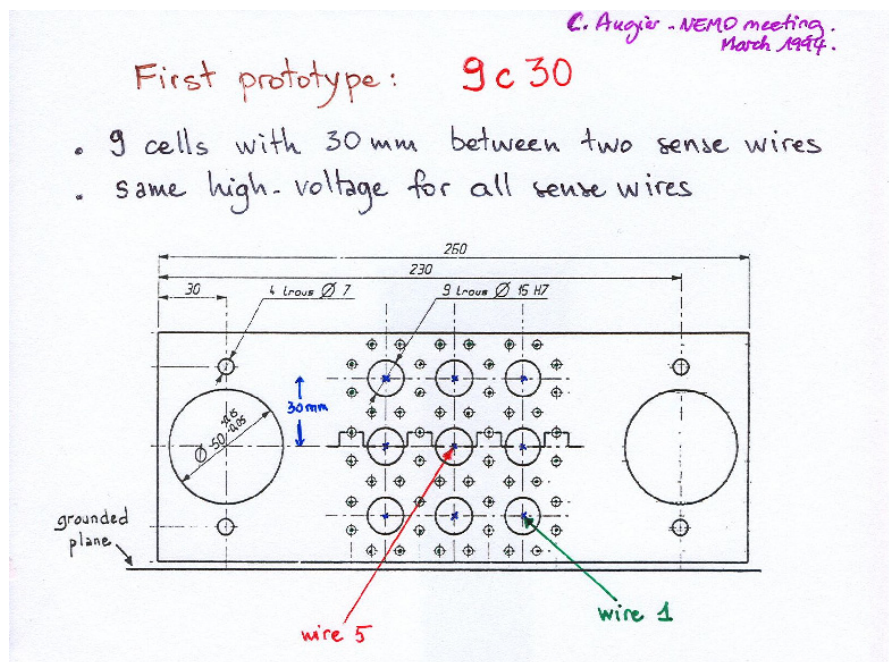 C. Augier - NEMO meeting.
March 1994.
First prototype: 9c30
. 9 cells with 30 mm between two sense wires
. same high-voltage for all sense wires
260
230
30
4 trous Ø 7
9 trous Ø 15 H7
30mm
Ø 50 +0.15 -0.05
grounded
plane
wire 1
wire 5